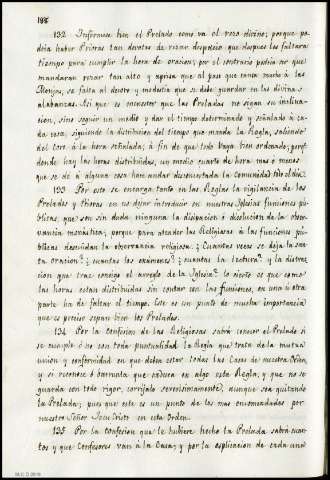 188
132 Infórmese bien el Prelado como va el rezo divino; porque po-
dria haber Prioras tan devotas de rezar despacio que despues les faltara
tiempo para cumplir la hora de oracion; por el contrario podria ser que
mandaran rezar tan alto y aprisa que al paso que cansa mucho á las
Monjas, se falta al decoro y modestia que se debe guardar en las divinas
alabanzas. Así que es menester que las Preladas no sigan su inclina-
cion, sino seguir un medio y dar el tiempo determinado y señalado á ca-
da cosa, siguiendo la distribucion del tiempo que manda la Regla, saliendo
del Coro á la hora señalada, á fin de que todo vaya bien ordenado; porq.
donde hay las horas distribuidas, un medio cuarto de hora mas ó menos
que se dé á alguna cosa hace andar desconcertada la Comunidad todo el dia.
133 Por esto se encarga tanto en las Reglas la vigilancia de los
Prelados y Prioras en no dejar introducir en nuestras Iglesias funciones pú-
blicas, que son sin duda ninguna la disipacion ó disolucion de la obser-
vancia monástica; porque para atender las Religiosas á las funciones pú-
blicas descuidan la observancia religiosa. ¿Cuantas veces se deja la san-
ta oracion? ¿cuantas los exámenes? ¿cuantas la lectura? y la distrac-
cion que trae consigo el arreglo de la Iglesia? Lo cierto es que como
las horas están distribuidas sin contar con las funciones, en una ú otra
parte ha de faltar el tiempo. Este es un punto de mucha importancia
que es preciso sepan bien los Prelados.
134 Por la Confesion de las Religiosas sabrá conocer el Prelado si
se cumple ó no con toda puntualidad la Regla que trata de la mutua
union y conformidad en que deben estar todas las Casas de nuestra Orden,
y si reconoce ó barrunta que aflojara en algo esta Regla, y que no se
guarda con todo rigor, corríjalo severísimamente, aunque sea quitando
la Prelada; pues que este es un punto de los mas encomendados por
nuestro Señor Jesucristo en esta Orden.
135 Por la confesion que le hubiere hecho la Prelada sabrá cuan-
tos y que Confesores van á la Casa; y por la esplicacion de cada una